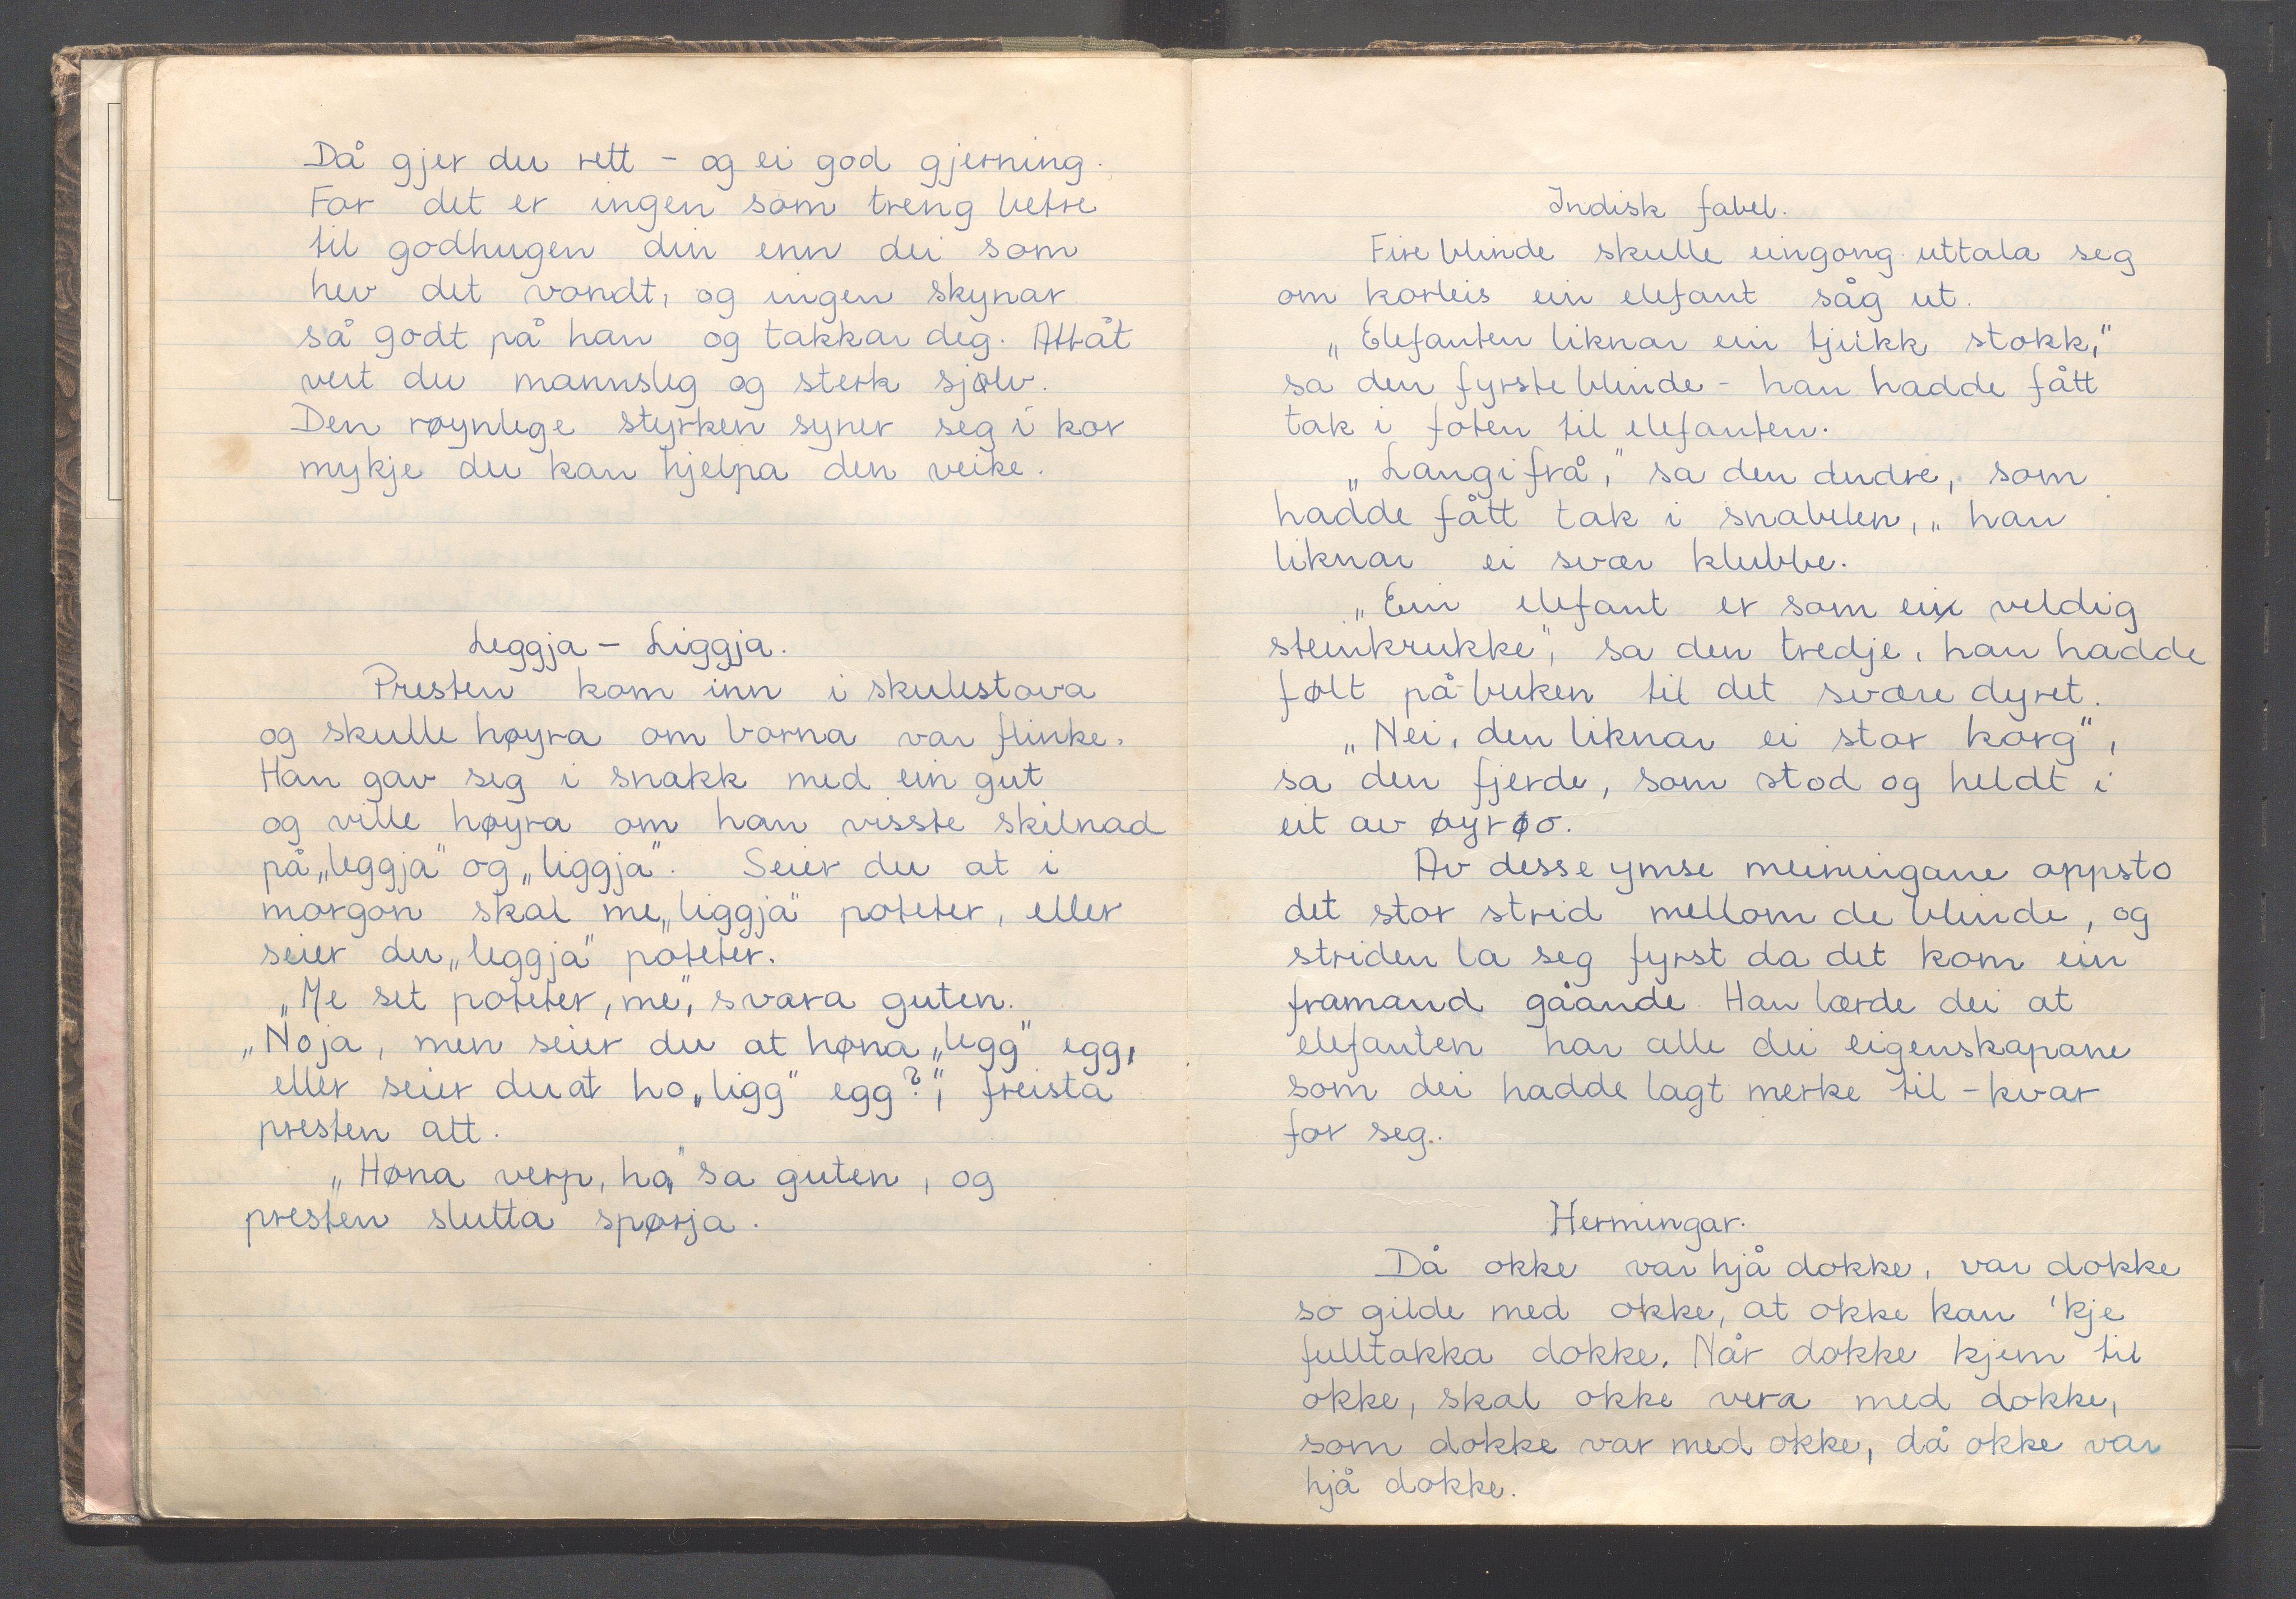 Då gjer du rett - og ei god gjerning.
For det er ingen som treng betre
til godhugen din enn dei som
hev det vondt, og ingen skynar
så godt på han og takkar deg. Attåt
vert du mannsleg og sterk sjølv.
Den røynlege styrken syner seg i kor
mykje du kan hjelpa den veike.
Leggja - Liggja.
Presten kom inn i skulestova
og skulle høyra om borna var flinke.
Han gav seg i snakk med ein gut
og ville høyra om han visste skilnad
på „leggja" og „liggja". Seier du at i
morgon skal me „liggja" poteter, eller
seier du „leggja" poteter.
„Me set poteter, me", svara guten.
„Noja, men seier du at høna „legg" egg,
eller seier du at ho „ligg" egg?", freista
presten att.
„Høna verp, ho," sa guten, og
presten slutta spørja.
Indisk fabel.
Fire blinde skulle eingong uttala seg
om korleis ein elefant såg ut.
„Elefanten liknar ein tjukk stokk,"
sa den fyrste blinde - han hadde fått
tak i foten til elefanten.
„Langifrå," sa den andre, som
hadde fått tak i snabelen, „han
liknar ei svær klubbe.
„Ein elefant er som ei veldig
steinkrukke", sa den tredje, han hadde
følt på buken til det svære dyret.
„Nei, den liknar ei stor korg",
sa den fjerde, som stod og heldt i
eit av øyro.
Av desse ymse meiningane oppsto
det stor strid mellom de blinde, og
striden la seg fyrst da det kom ein
framand gåande. Han lærde dei at
elefanten har alle dei eigenskapane
som dei hadde lagt merke til - kvar
for seg.
Hermingar.
Då okke var hjå dokke, var dokke
so gilde med okke, at okke kan 'kje
fulltakka dokke. Når dokke kjem til
okke, skal okke vera med dokke,
som dokke var med okke, då okke var
hjå dokke.